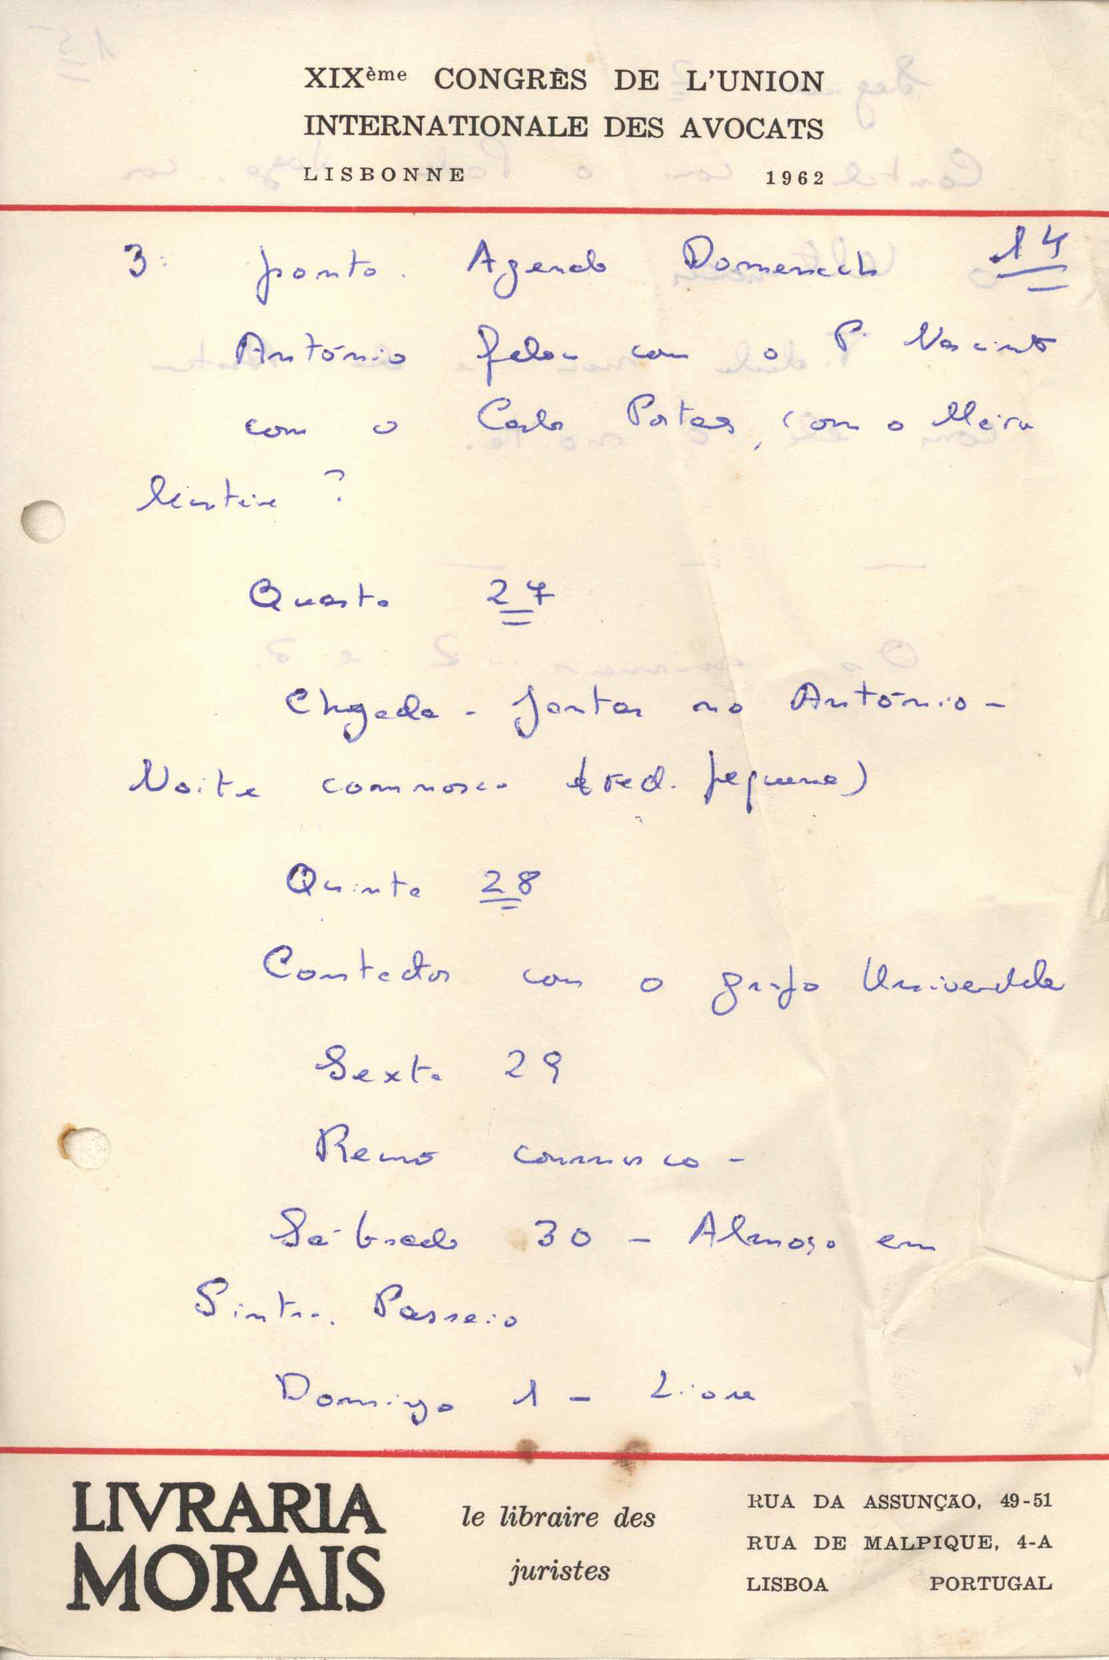 XIXème CONGRÈS DE L'UNION
INTERNATIONALE DES AVOCATS
LISBONNE 1962
14
3: ponto. Agenda Domenach
António falou com o P. Nascimto
com o Carlos Portas, com o Meira
?
Quarta 27
Chegada - Jantar no António -
Noite connosco (red. pequena)
Quinta 28
Contactos com o grupo
Sexta 29
connosco -
Sábado 30 - Almoço em
Sintra. Passeio
Domingo 1 - Livre
LIVRARIA
MORAIS
le libraire des
juristes
RUA DA ASSUNÇÃO, 49-51
RUA DE MALPIQUE, 4-A
LISBOA PORTUGAL